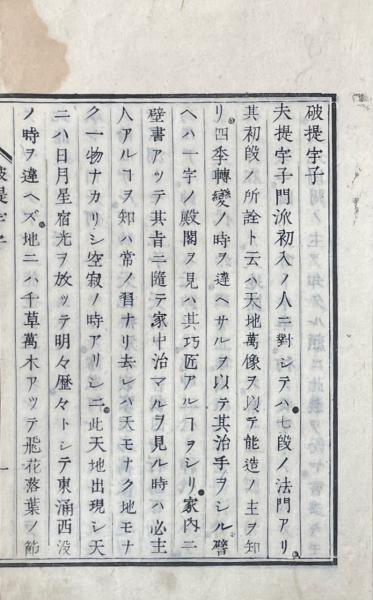 破提宇子
夫提宇子門派初入ノ人ニ對シテハ七段ノ法門アリ
其初段ノ所詮ト云ハ天地萬像ヲ以テ能造ノ主ヲ知
リ四季轉變ノ時ヲ違ヘサルヲ以テ其治手ヲシル譬
ヘハ一宇ノ殿閣ヲ見ハ其巧匠アルヿヲシリ家內ニ
壁書アツテ其旨ニ隨テ家中治マルヲ見ル時ハ必主
人アルヿヲ知ハ常ノ習ナリ去レバ天モナク地モナ
ク一物ナカリシ空寂ノ時アリシニ此天地出現シ天
ニハ日月星宿光ヲ放ツテ明々歷々トシテ東涌西沒
ノ時ヲ違ヘズ地ニハ千草萬木アツテ飛花落葉ノ節
破提宇子
一